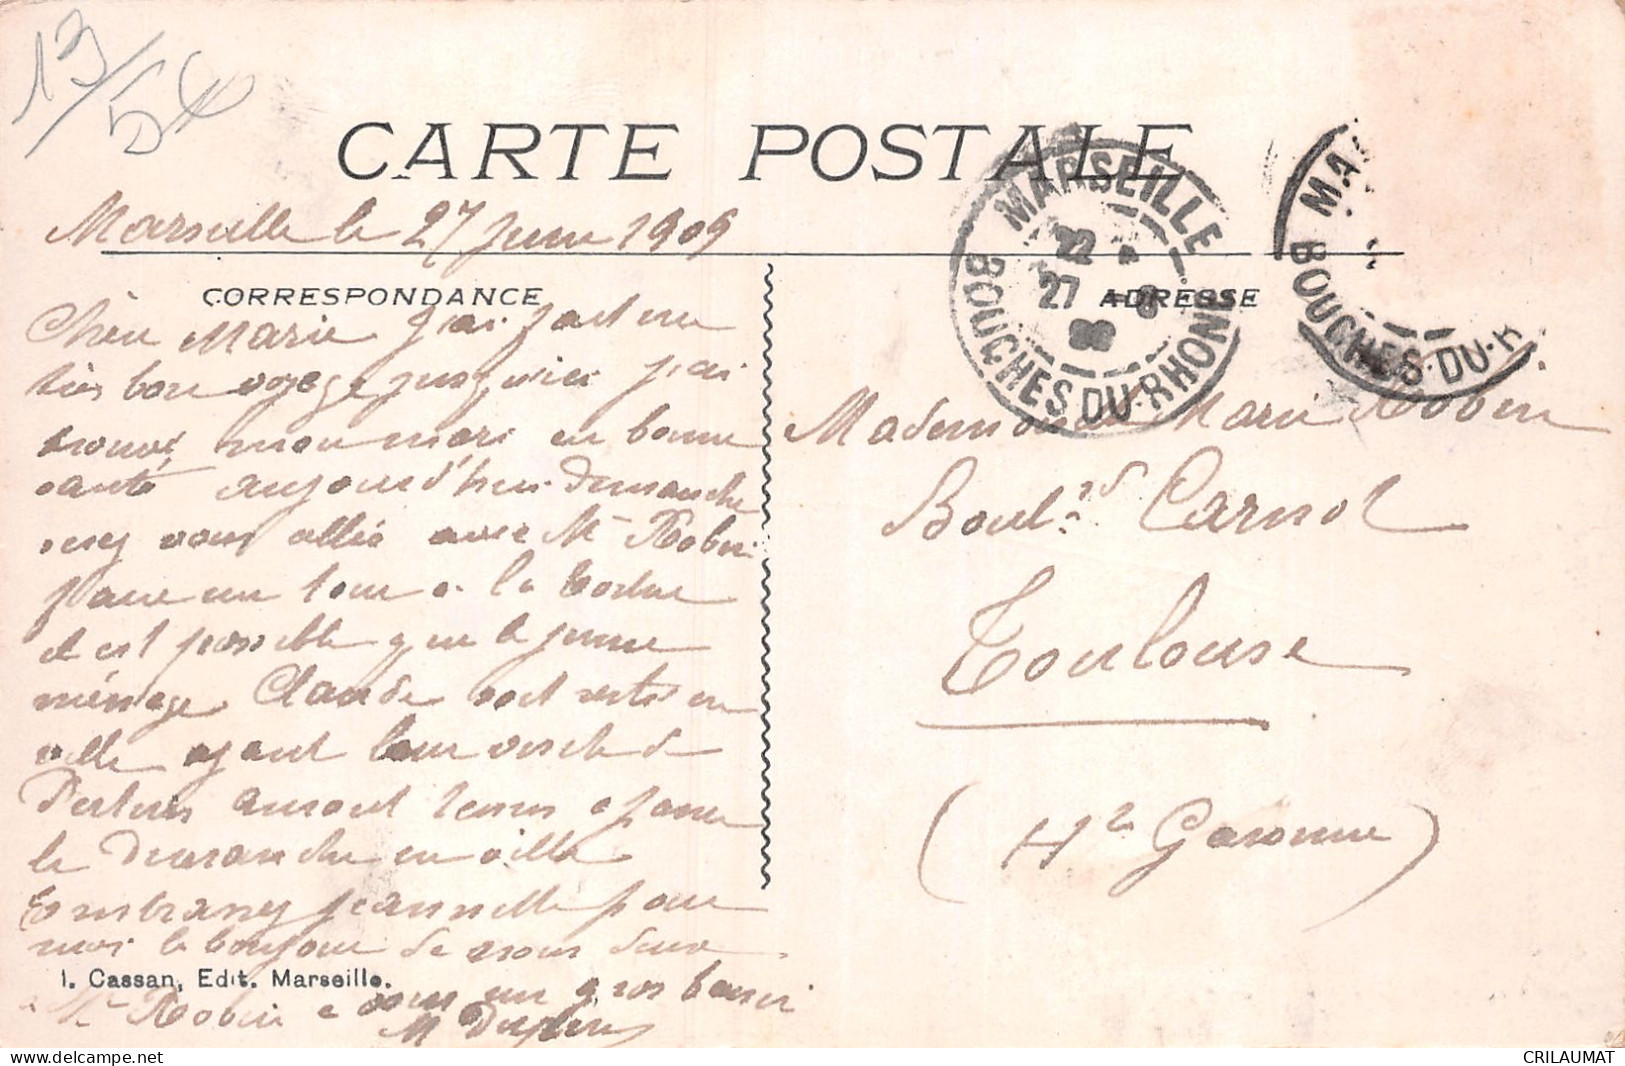 13/54
CARTE POSTALE
Marseille le 27 Juin 1909
CORRESPONDANCE
Chère Marie j'ai fait un
très bon voyage jusqu'ici j'ai
trouvé mon mari en bonne
santé aujourd'hui Demanche
serez vous allée avec Mme Robin
faire un tour a la
il est possible que le jeune
ménage Claude soit resté en
ville ayant leur visite de
auront tenus a faire
le Dimanche en ville
Embrassez Jeannette pour
moi le bonjour de nous deux
a Mme Robin e a vous un gros baiser
M
I. Cassan, Edit. Marseille.
MARSEILLE
22
27 6
09
BOUCHES DU-RHONE
MA
BOUCHES-DU-R
ADRESSE
Mademoiselle Marie Robin
Boul.rd Carnot
Toulouse
(Hte Garonne)
CRILAUMAT